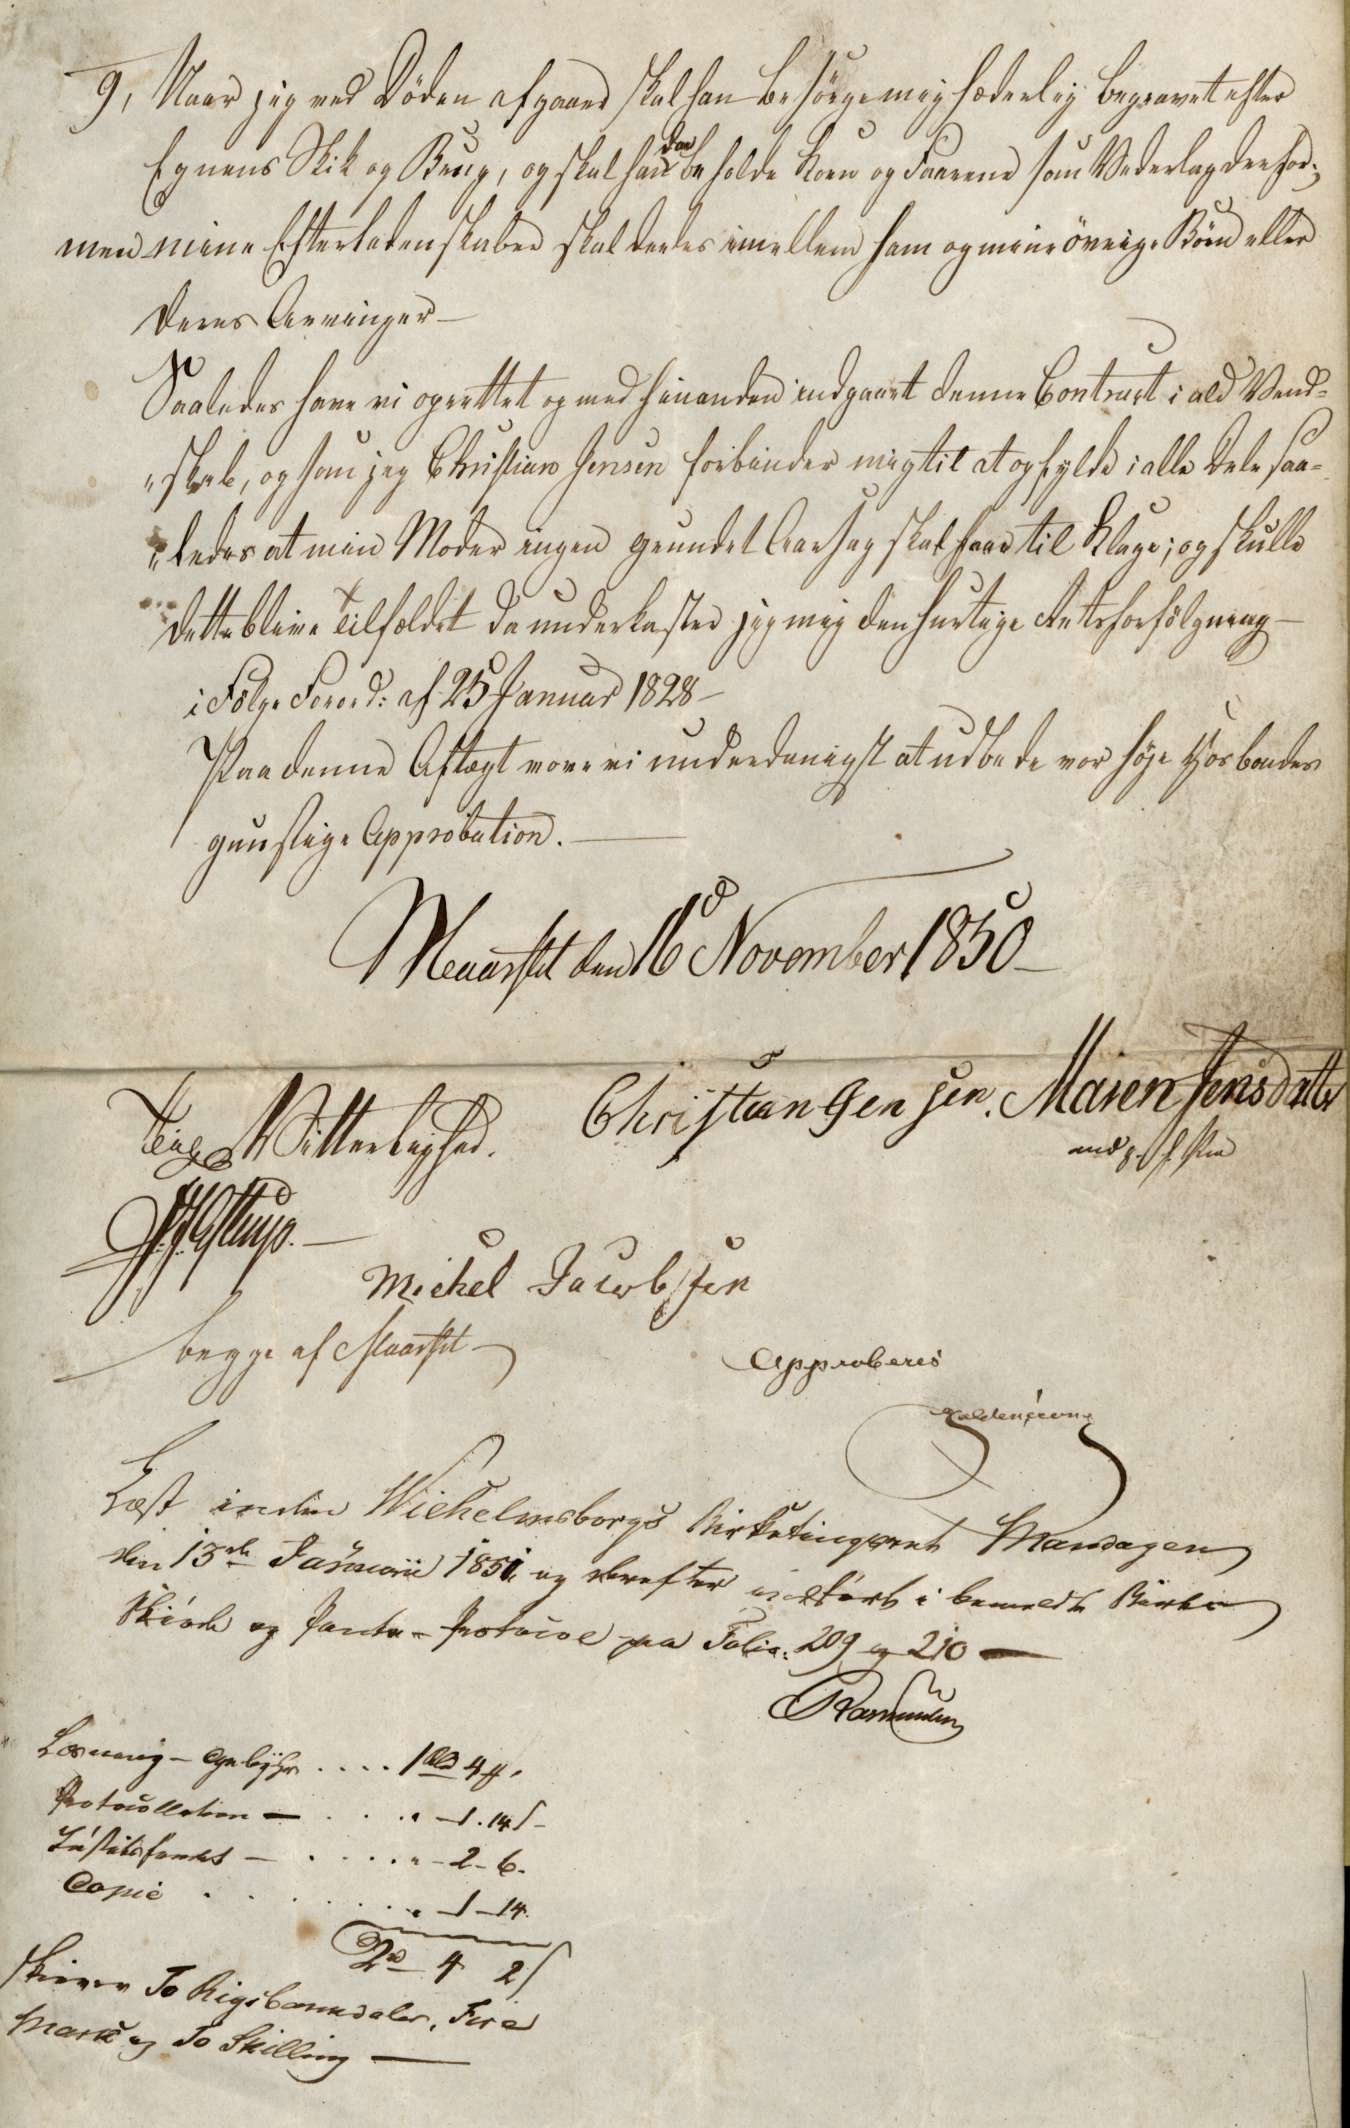 9, Naar jeg ved Döden afgaaer skal han besörge mig hæderlig begravet efter
Egnens Skik og Brug, og skal han da beholde Koen og Faarene som Vederlag derfor;
men mine Efterladenskaber skal deeles imellem ham og mine övrige Börn eller
deres Arvinger —
Saaledes have vi oprettet og med hinanden indgaaet denne Contract i ald Vend=
"skab, og som jeg Christian Jensen forbinder mig til at opfylde i alle Dele saa=
"ledes at min Moder ingen grundet Aarsag skal faae til Klage; og skulle
dette blive Tilfældet da underkaster jeg mig den hurtige Retsforfölgning —
i Fölge Forord: af 25 Januar 1828 —
Paa denne Aftægt vove vi underdanigst at udbede vor höje Hosbondes
gunstige Approbation. —
Maarslet den 16 November 1850 —
Christian Jensen. Maren Jensdatter
med p. f. Pen
Til Vitterlighed.
Michel Jacobsen
begge af Maarslet —
Approberes
Gyldenkrone
Læst inden Wilhelmsborgs Birketingsret Mandagen
den 13de Januarii 1851, og derefter indfört i bemeldte Birks
Skiöde og Pante-Protocol paa Folio: 209 og 210 —
Rasmussen
Læsning-Gebyhr .... 1 Rd 4 ß.
Protocollation — .... " — 1. 14 ß —
Justitsfondet — .... " — 2 — 6.
Copie ........ " — 1 — 14.
2 Rd 4 2 ß
skriver To Rigsbankdaler, Fire
Mark og To Skilling —